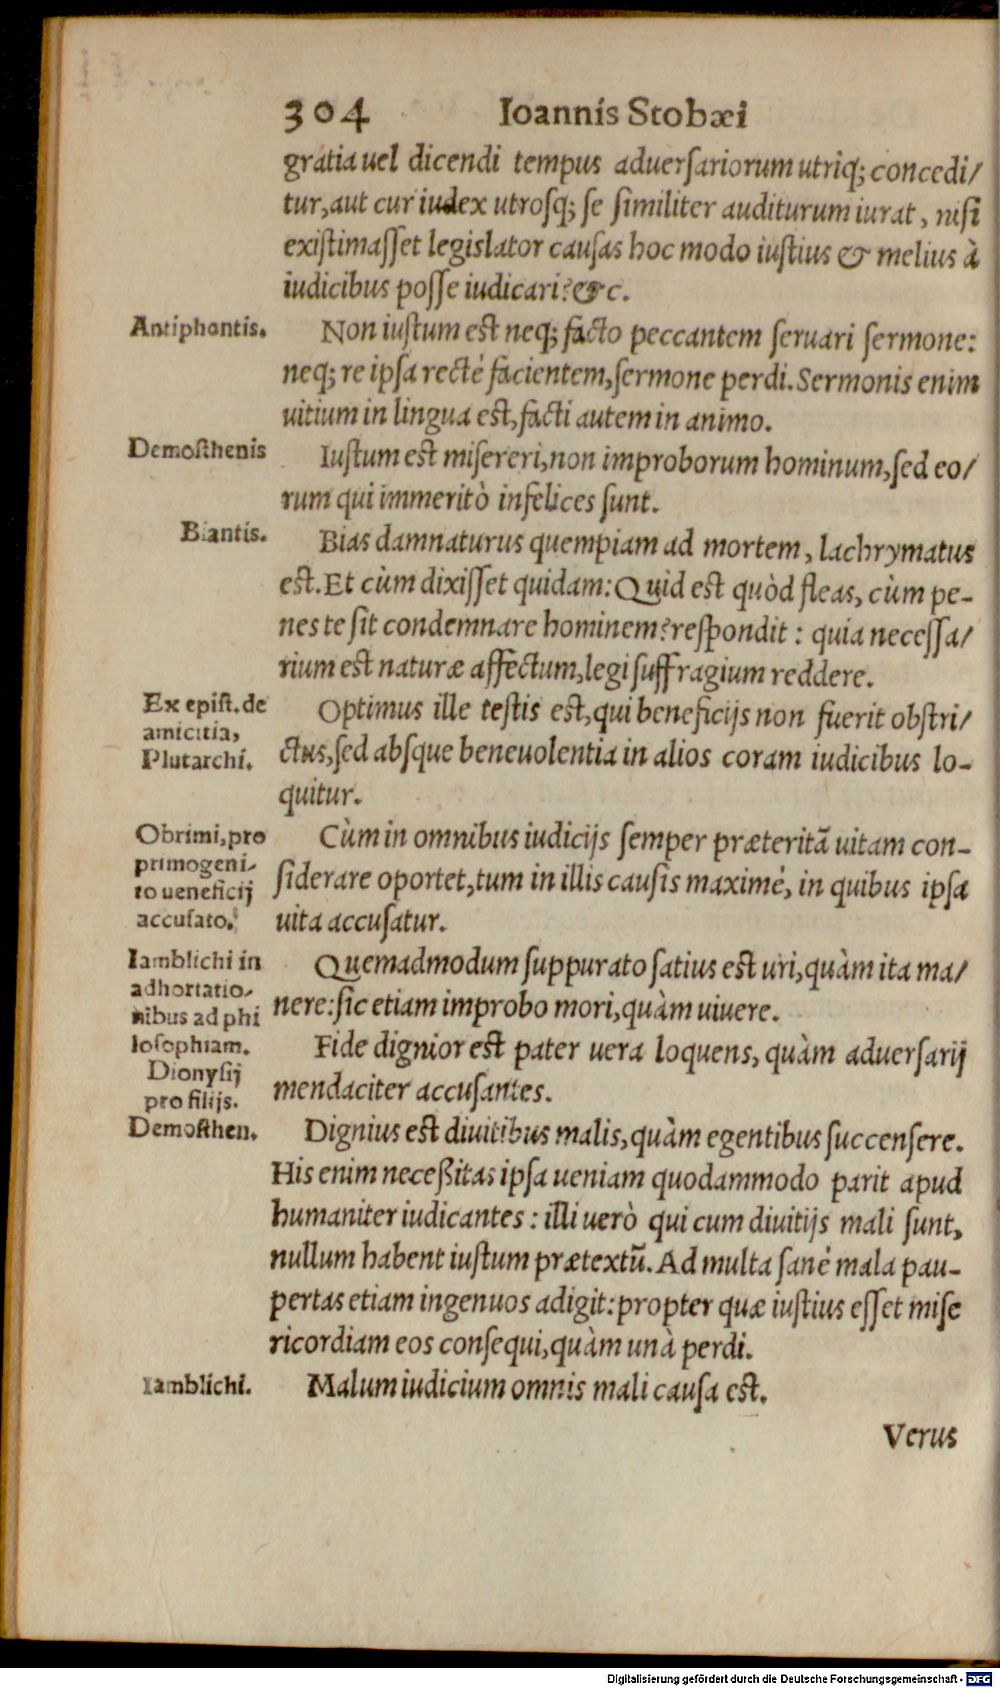 304 Ioannis Stobæi
gratia uel dicendi tempus aduersariorum utriq; concedi/
tur, aut cur iudex utrosq; se similiter auditurum iurat, nisi
existimasset legislator causas hoc modo iustius & melius à
iudicibus posse iudicari? &c.
Antiphontis.
Non iustum est neq; facto peccantem seruari sermone:
neq; re ipsa rectè facientem, sermone perdi. Sermonis enim
uitium in lingua est, facti autem in animo.
Demosthenis
Iustum est misereri, non improborum hominum, sed eo/
rum qui immeritò infelices sunt.
Biantis.
Bias damnaturus quempiam ad mortem, lachrymatus
est. Et cùm dixisset quidam: Quid est quòd fleas, cùm pe-
nes te sit condemnare hominem? respondit: quia necessa/
rium est naturæ affectum, legi suffragium reddere.
Ex epist. de
amicitia,
Plutarchi.
Optimus ille testis est, qui beneficijs non fuerit obstri/
ctus, sed absque beneuolentia in alios coram iudicibus lo-
quitur.
Obrimi, pro
primogeni-
to ueneficij
accusato.
Cùm in omnibus iudicijs semper præteritã uitam con-
siderare oportet, tum in illis causis maximè, in quibus ipsa
uita accusatur.
Iamblichi in
adhortatio-
nibus ad phi
losophiam.
Quemadmodum suppurato satius est uri, quàm ita ma/
nere: sic etiam improbo mori, quàm uiuere.
Dionysij
pro filijs.
Fide dignior est pater uera loquens, quàm aduersarij
mendaciter accusantes.
Demosthen.
Dignius est diuitibus malis, quàm egentibus succensere.
His enim neceßitas ipsa ueniam quodammodo parit apud
humaniter iudicantes: illi uerò qui cum diuitijs mali sunt,
nullum habent iustum prætextũ. Ad multa sanè mala pau-
pertas etiam ingenuos adigit: propter quæ iustius esset mise
ricordiam eos consequi, quàm unà perdi.
Iamblichi.
Malum iudicium omnis mali causa est.
Verus
Digitalisierung gefördert durch die Deutsche Forschungsgemeinschaft - DFG